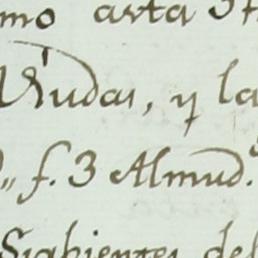 mo asta
Viudas, y la
f. 3 Almud.
Siguientes del